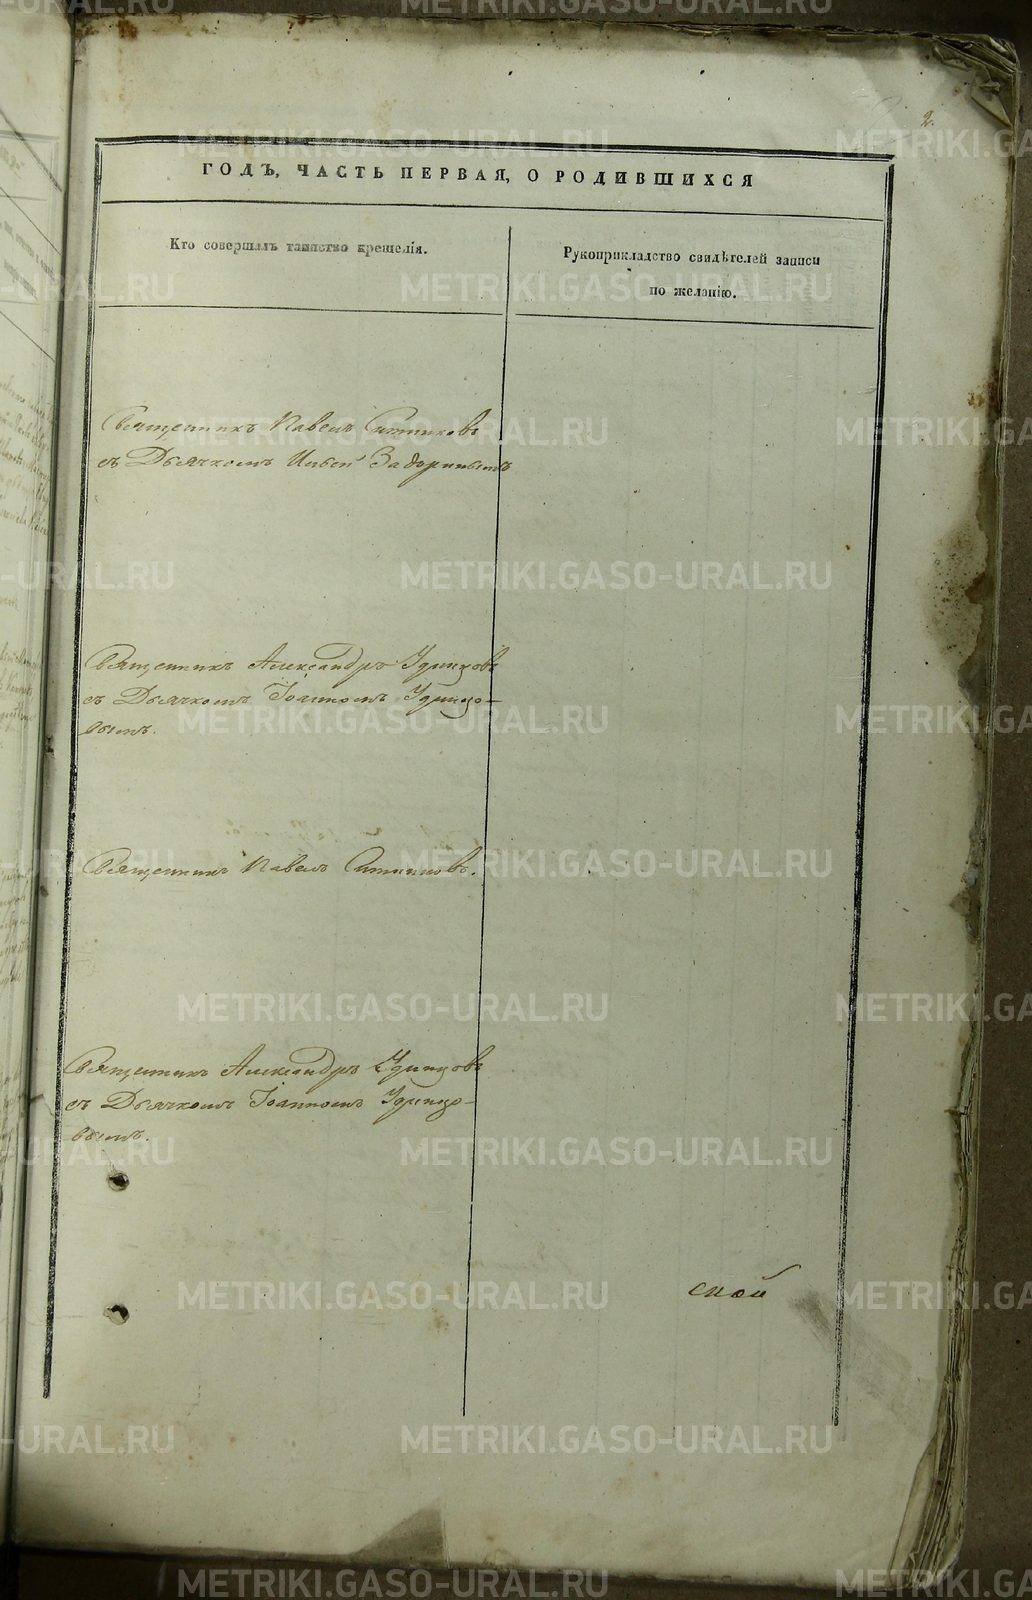 2.
ГОДЪ, ЧАСТЬ ПЕРВАЯ, О РОДИВШИХСЯ
Кто совершалъ таинство крещенія.
Рукоприкладство свидѣтелей записи
по желанію.
Священникъ Павелъ Ситниковъ
съ Дьячкомъ Ильей Задоринымъ
Священникъ Александръ Удинцовъ
съ Дьячкомъ Іоанномъ Удинцо-
вымъ.
Священникъ Павелъ Ситниковъ.
Священникъ Александръ Удинцовъ
съ Дьячкомъ Іоанномъ Удинцо-
вымъ.
ской
METRIKI.GASO-URAL.RU